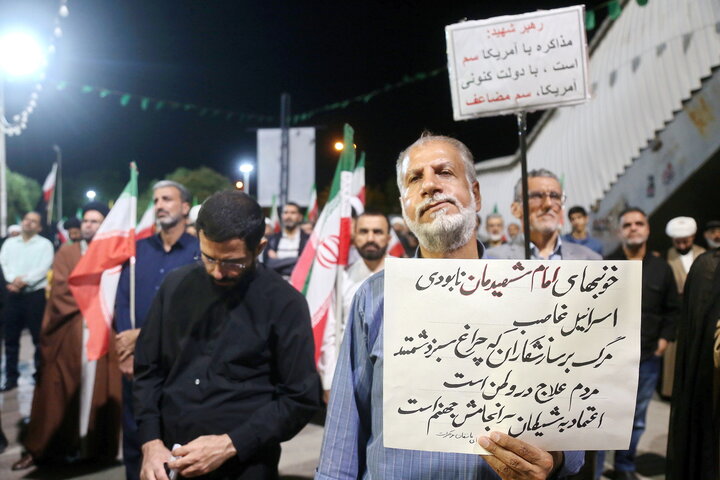 رهبر شهید:
مذاکره با آمریکا سم
است ، با دولت کنونی
آمریکا، سم مضاعف
خونبهای امام شهیدمان نابودی
اسرائیل غاصب
مرگ بر سازشکاران که چراغ سبز دشمنند
مردم علاج درد وطن است
اعتماد به شیطان سرانجامش جهنم است